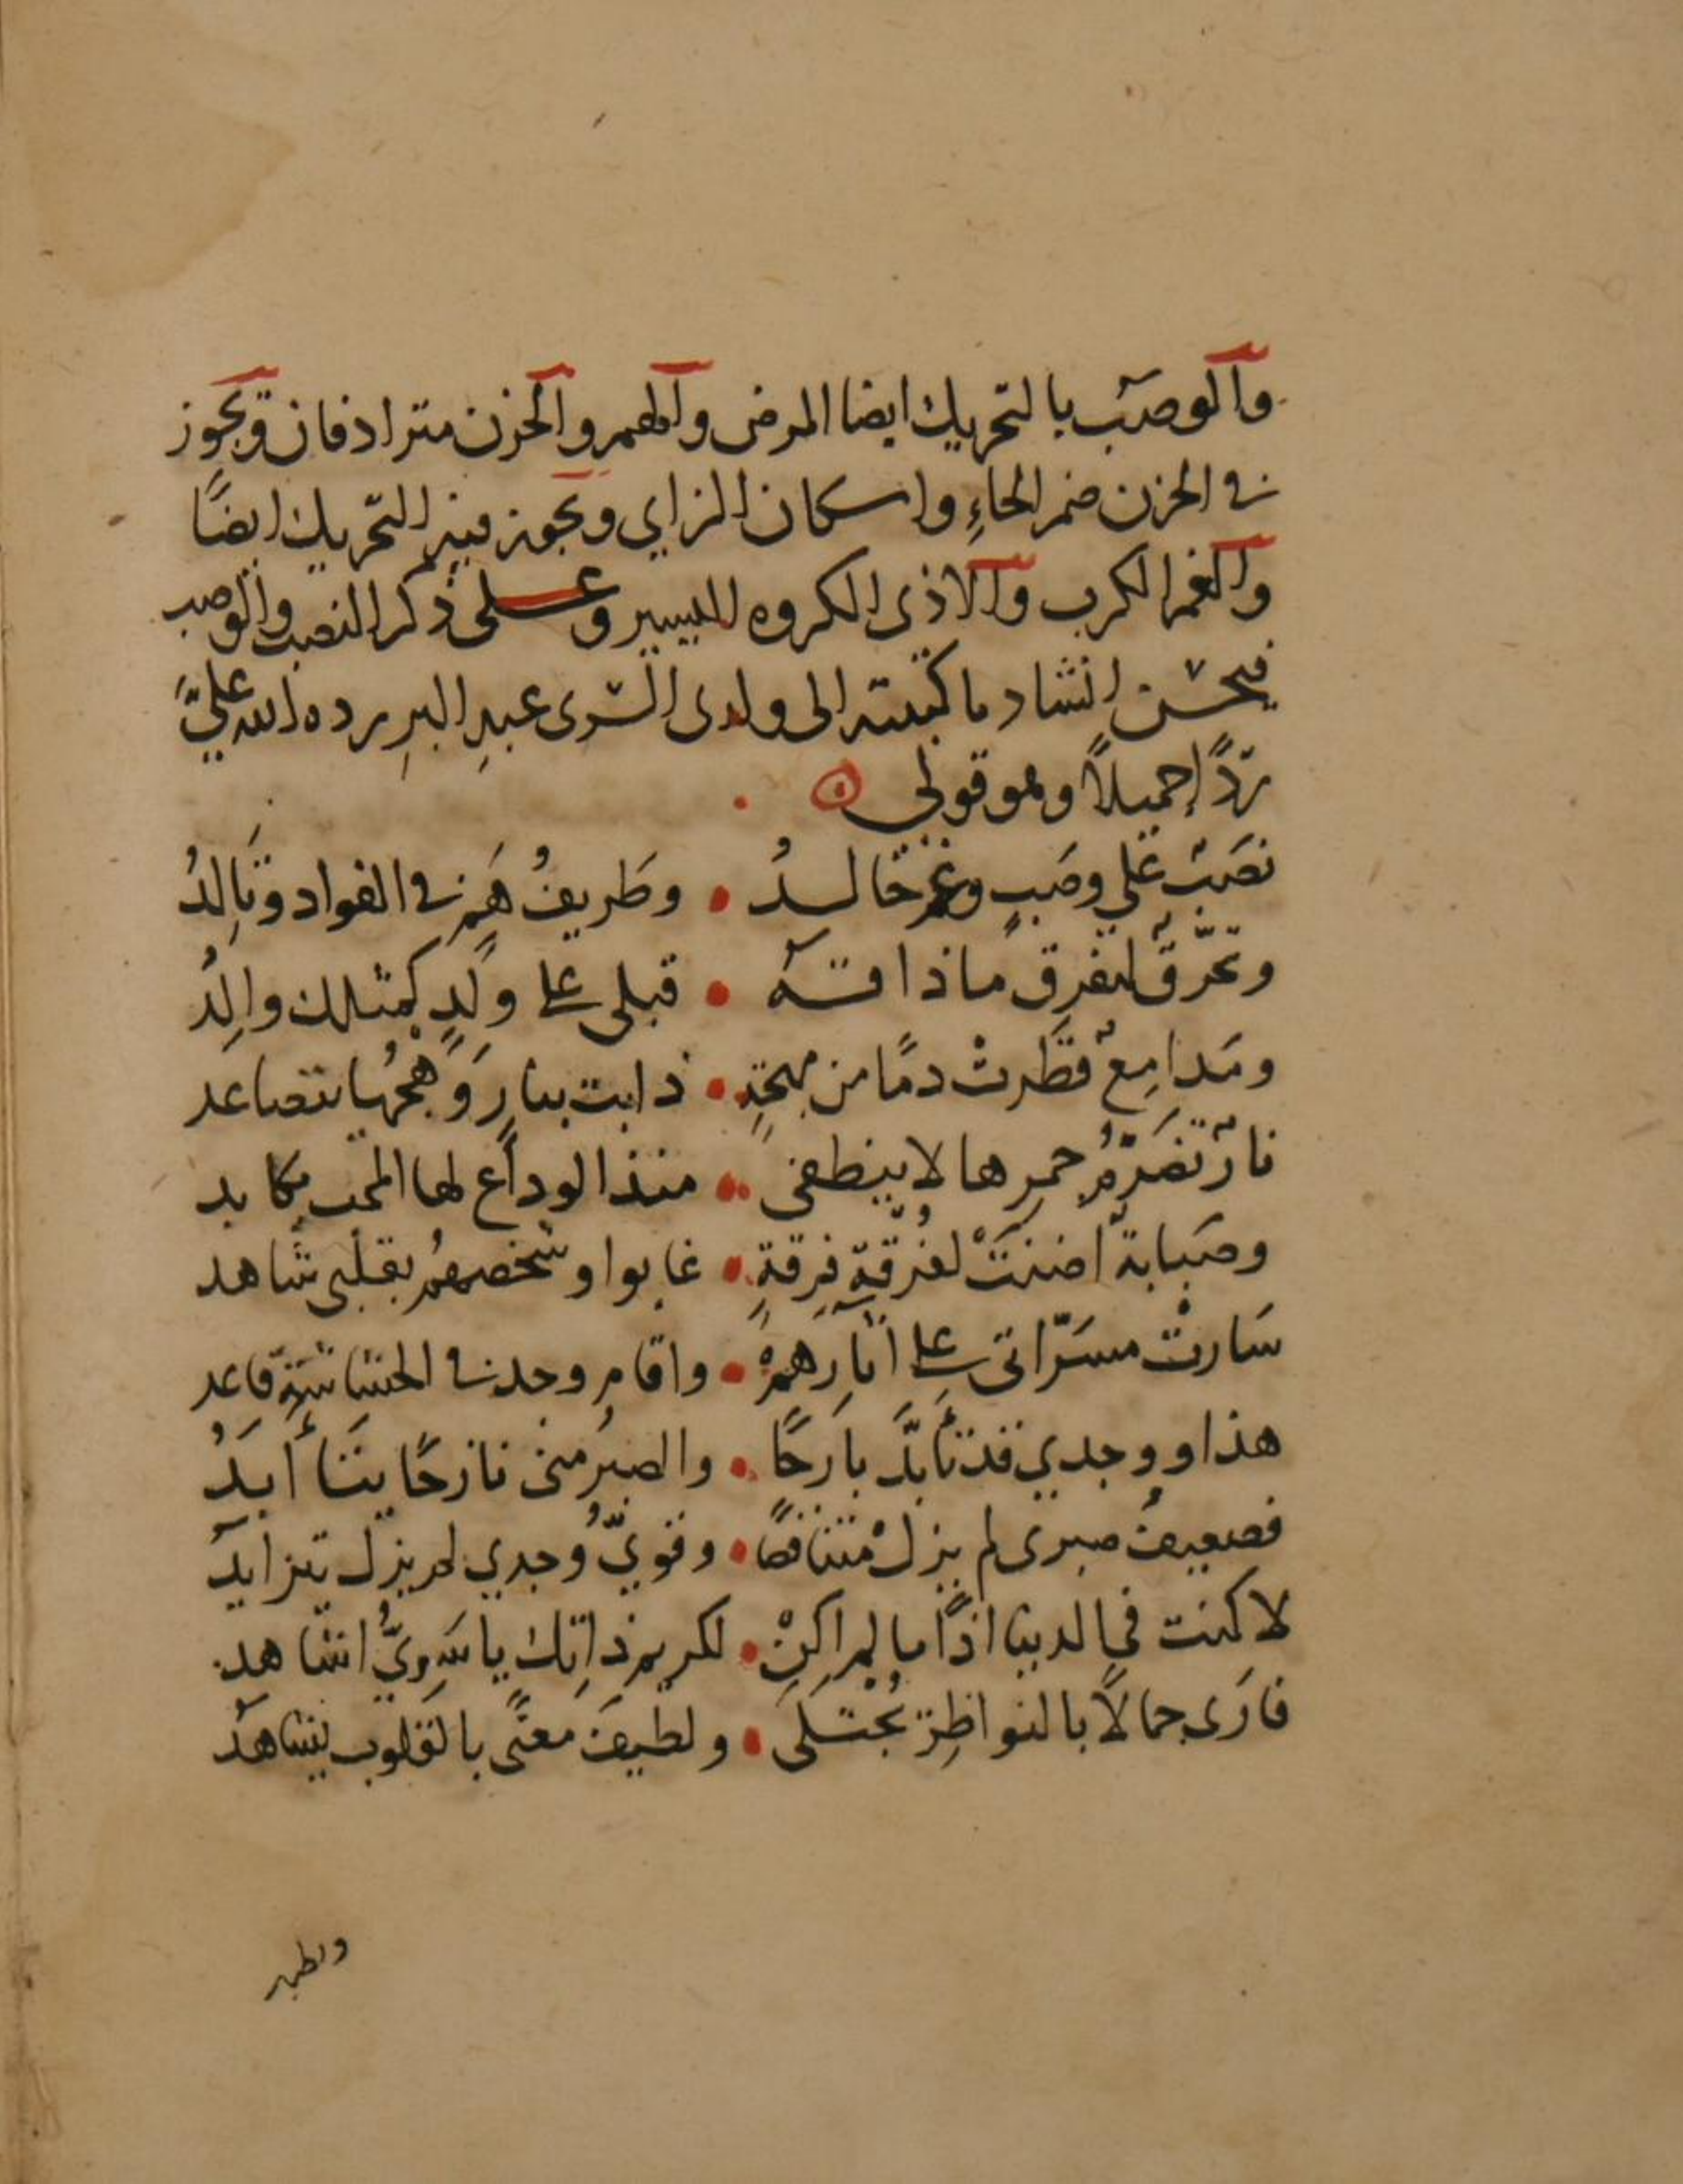 والوصَب بالتحريك ايضا المرض والهم والحزن مترادفان ويجوز
في الحزن ضم الحاءِ واسكان الزاي ويجوز فيه التحريك ايضًا
والغم الكرب والاذى المكروه اليسير وعلى ذكر النصب والوصب
فيحسن انشاد ما كتبته الى ولدى السرى عبدِ البرِ رده الله عليَّ
ردًّا جميلاً وهو قولي
نصَبٌ علي وصَبٍ وغم خالدُ • وطريفُ هَمٍ في الفواد وتَالِدُ
وتحَرّقٌ لتفرقٍ ما ذاقه • قبلى على ولَدٍ كمثلك والِدُ
ومَدامِعٌ قطَرتْ دمًا من مهجةٍ • ذابت بنارٍ وَهجُها يتصاعد
نارٌ تضَرّمُ جمرها لا ينطفى • منذ الوداع لها المحب يكابد
وصَبابة اضنَتْ لفُرقةِ فِرقةٍ • غابوا وشخصهُم بقلبى شاهد
سَارتْ مسَرّاتى على اثارِهمْ • واقام وجد في الحشاشة قاعد
هذا ووجدي قد تأبَّد بارحًا • والصبرُ منى نازحًا يتأبدُ
فضعيفُ صبرى لم يزلْ متناقصًا • وقويُّ وجدي لم يزل يتزايدُ
لا كنت في الدنيا اذًا ما لم اكنْ • لكريم ذاتك يا سَرِيُّ اشاهد
فارَى جمالاً بالنواظِر يُجتلَى • ولطيفَ معنًى بالقلوب يشاهدُ